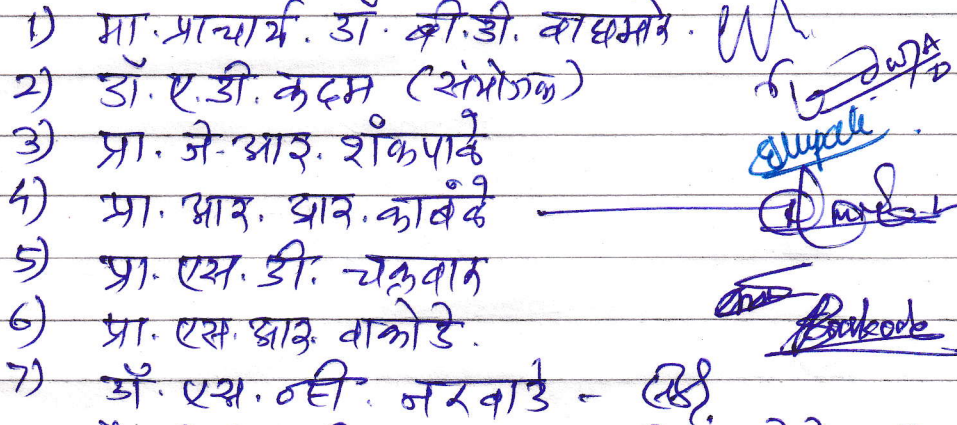 1) मा. प्राचार्य. डॉ. बी.डी. वाघमारे.
2) डॉ. ए. डी. कदम (संयोजक)
3) प्रा. जे. आर. शंकपाळे
4) प्रा. आर. आर. कांबळे
5) प्रा. एस. डी. चक्रवार
6) प्रा. एस. आर. वाकोडे.
7) डॉ. एस. व्ही. नरवाडे -